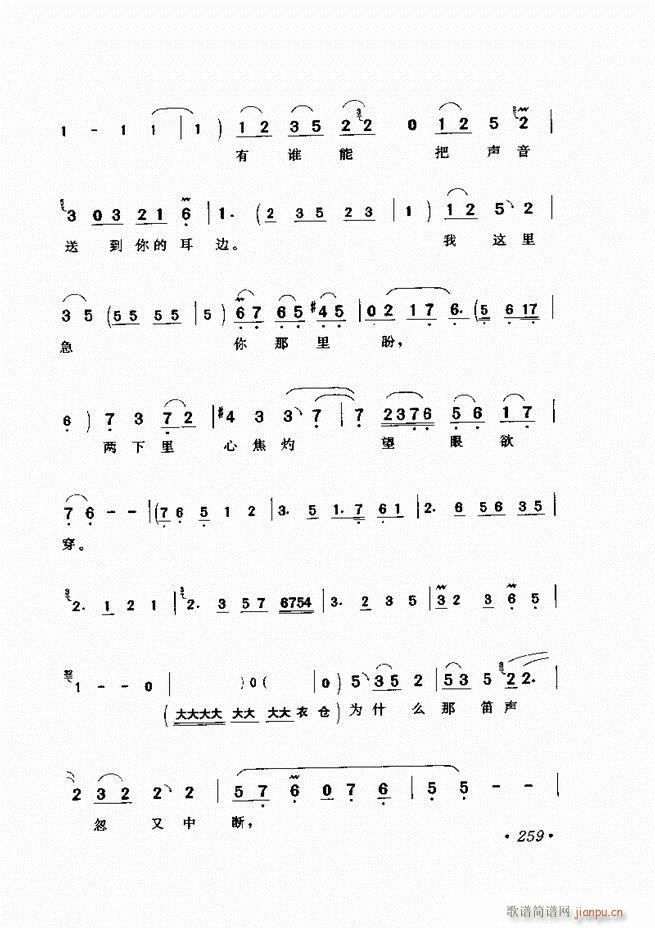 1 - 1 1 | 1 ) 1 2 3 5 2 2 0 1 2 5 2 |
有 谁 能 把 声 音
3 0 3 2 1 6 | 1. ( 2 3 5 2 3 | 1 ) 1 2 5 2
送 到 你 的 耳 边。 我 这 里
3 5 ( 5 5 5 5 | 5 ) 6 7 6 5 #4 5 | 0 2 1 7 6. ( 5 6 1 7 |
急 你 那 里 盼,
6 ) 7 3 7 2 | #4 3 3 7 | 7 2 3 7 6 5 6 1 7 |
两 下 里 心 焦 灼 望 眼 欲
7 6 - - | ( 7 6 5 1 2 | 3. 5 1. 7 6 1 | 2. 6 5 6 3 5 |
穿。
2. 1 2 1 | 2. 3 5 7 6 7 5 4 | 3. 2 3 5 | 3 2 3 6 5 |
1 - - 0 | ) 0 ( | 0 ) 5 3 5 2 | 5 3 5 2 2.
( 大大大大 大大 大大 衣 仓 ) 为 什 么 那 笛 声
2 3 2 2 2 | 5 7 6 0 7 6 | 5 5 - - |
忽 又 中 断,
· 259 ·
歌谱简谱网 jianpu.cn